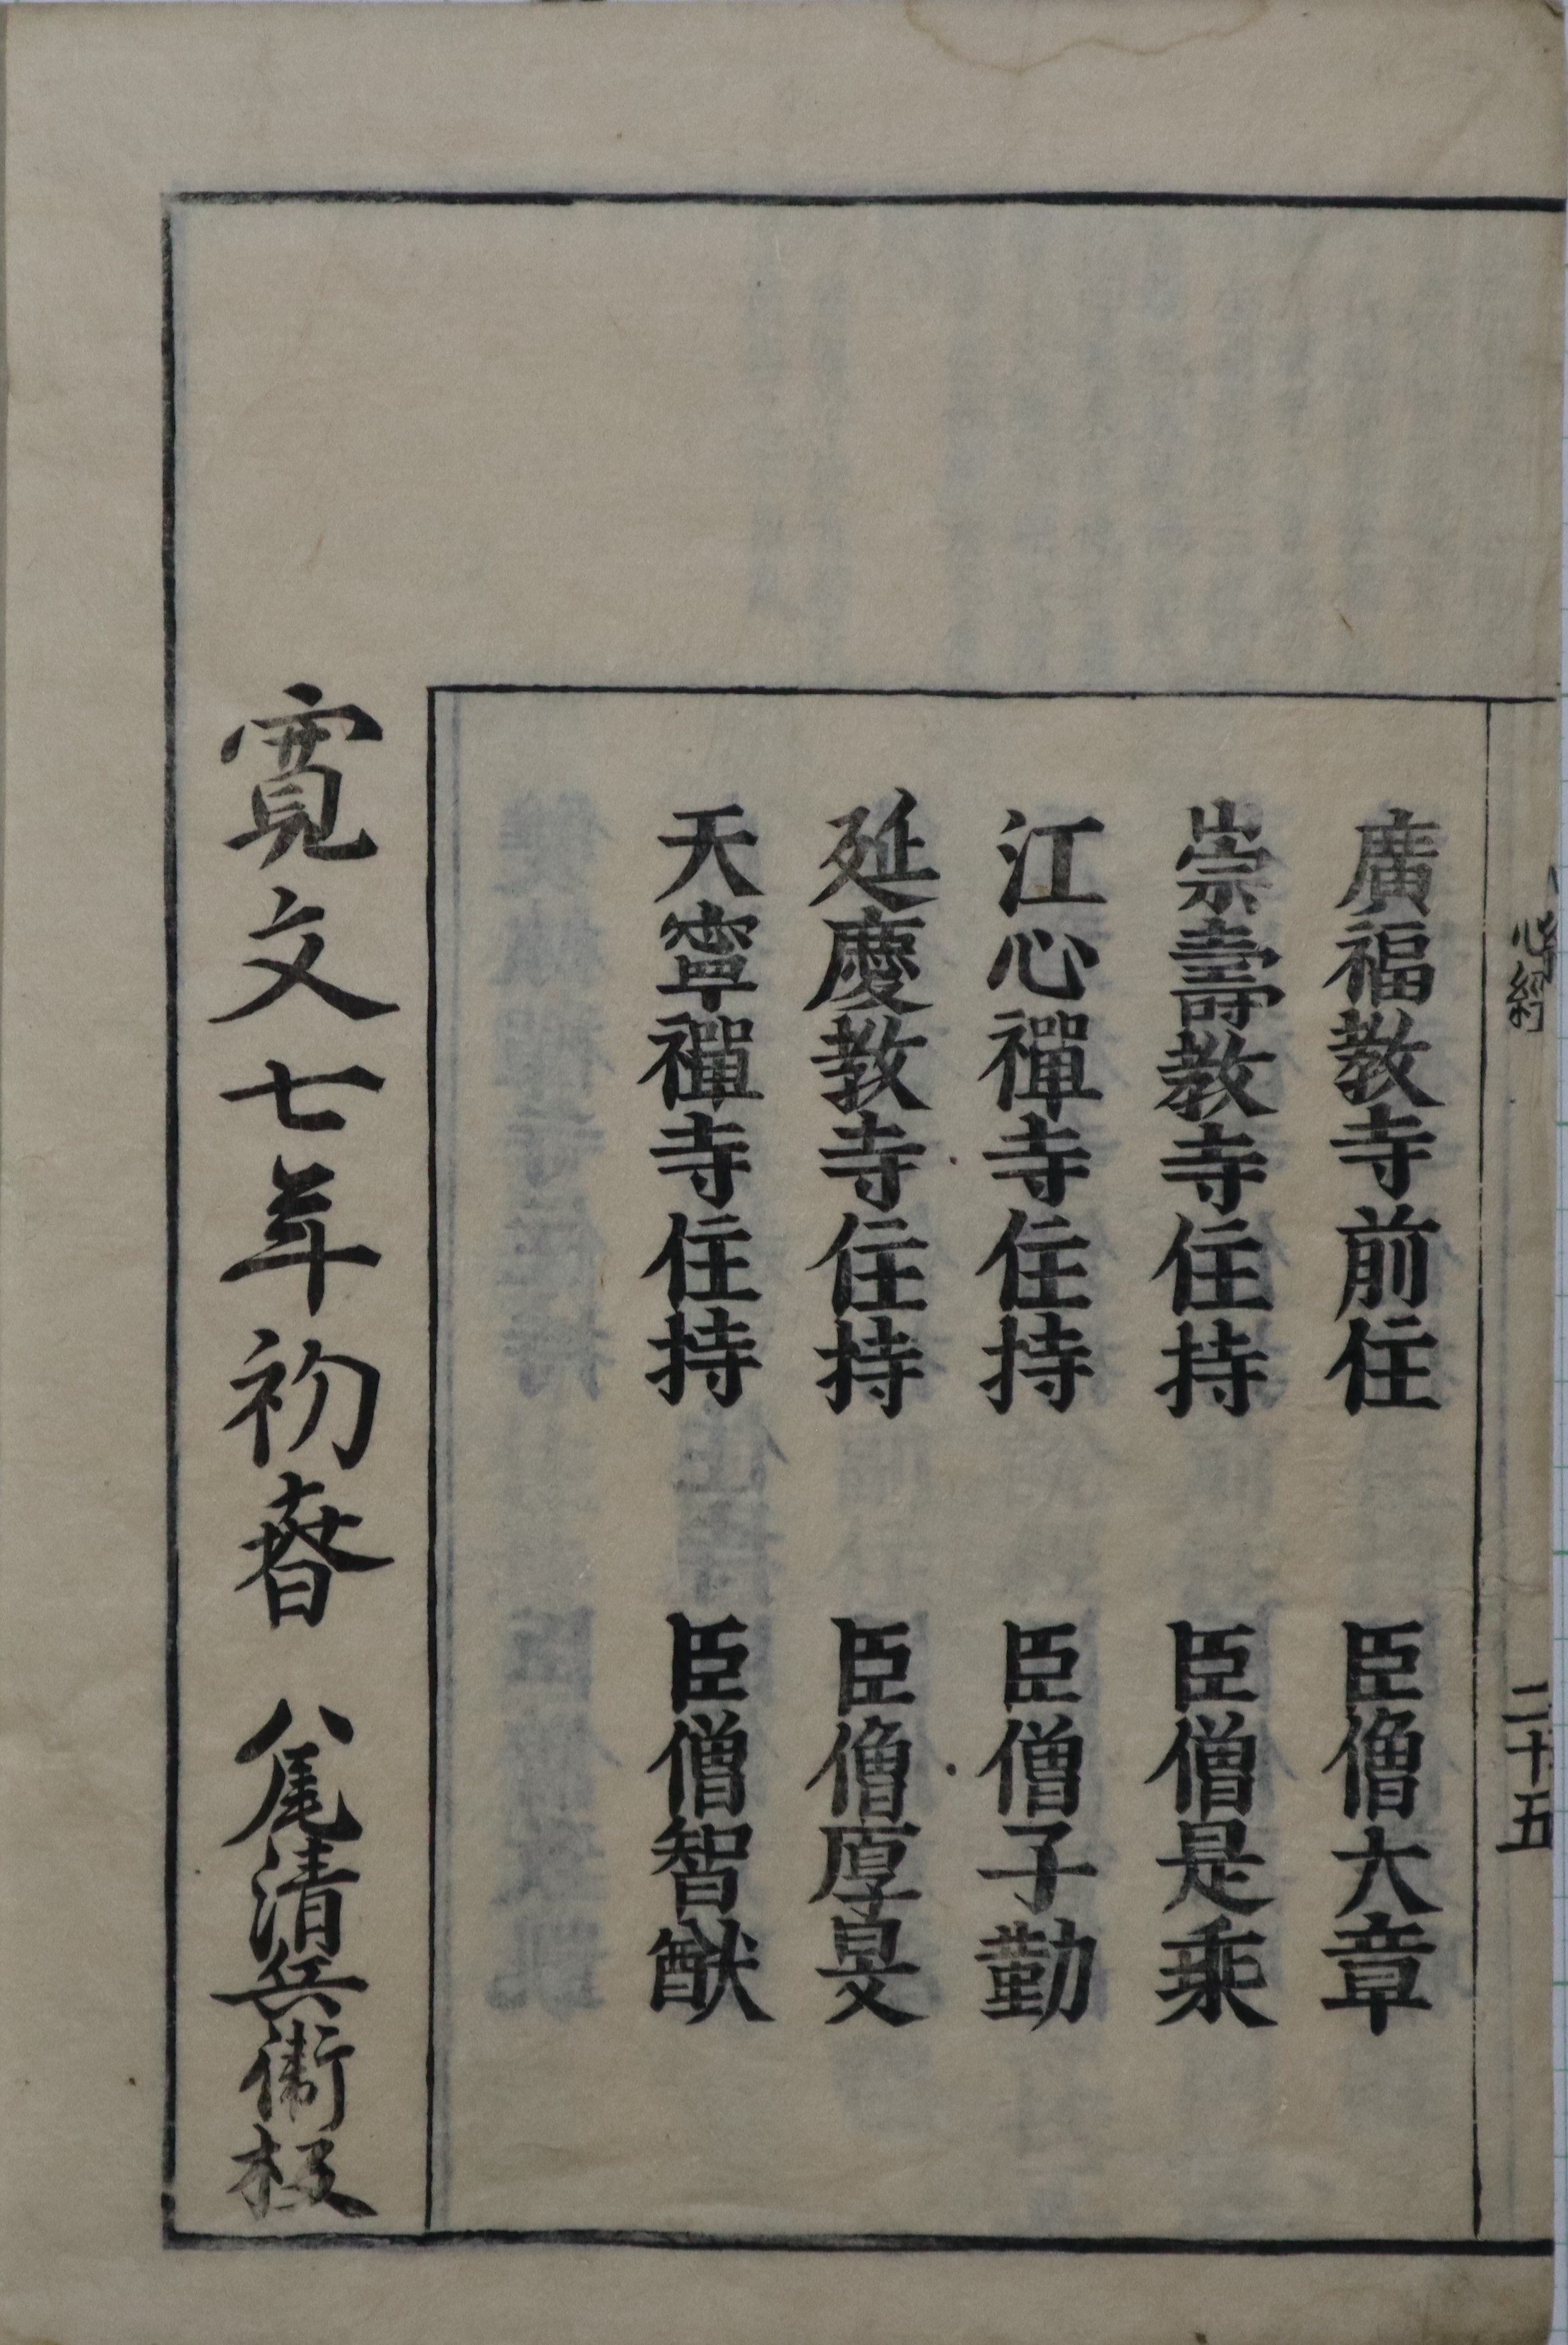 心經
二十五
廣福教寺前住 臣僧大章
崇壽教寺住持 臣僧是乘
江心禪寺住持 臣僧子勤
延慶教寺住持 臣僧厚旻
天寧禪寺住持 臣僧智猷
寛文七年初春 八尾清兵衛板